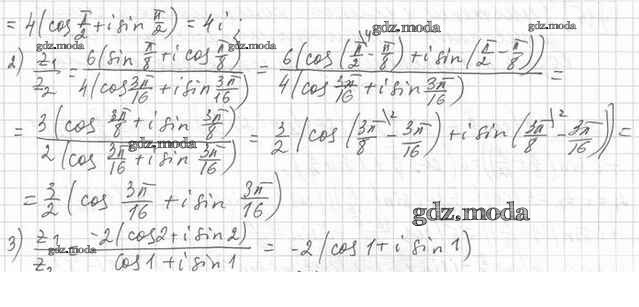 = 4(cos π/2 + i sin π/2) = 4i;
gdz.moda gdz.moda gdz.moda
2) z₁/z₂ = 6(sin π/8 + i cos π/8) / 4(cos 3π/16 + i sin 3π/16) = 6(cos(π/2 \4 - π/8) + i sin(π/2 - π/8)) / 4(cos 3π/16 + i sin 3π/16) =
= 3(cos 3π/8 + i sin 3π/8) / 2(cos 3π/16 + i sin 3π/16) = 3/2 (cos(3π/8 \2 - 3π/16) + i sin(3π/8 \2 - 3π/16)) =
gdz.moda
= 3/2 (cos 3π/16 + i sin 3π/16)
gdz.moda
3) z₁/z₂ = -2(cos2 + i sin2) / cos1 + i sin1 = -2(cos1 + i sin1)
gdz.moda